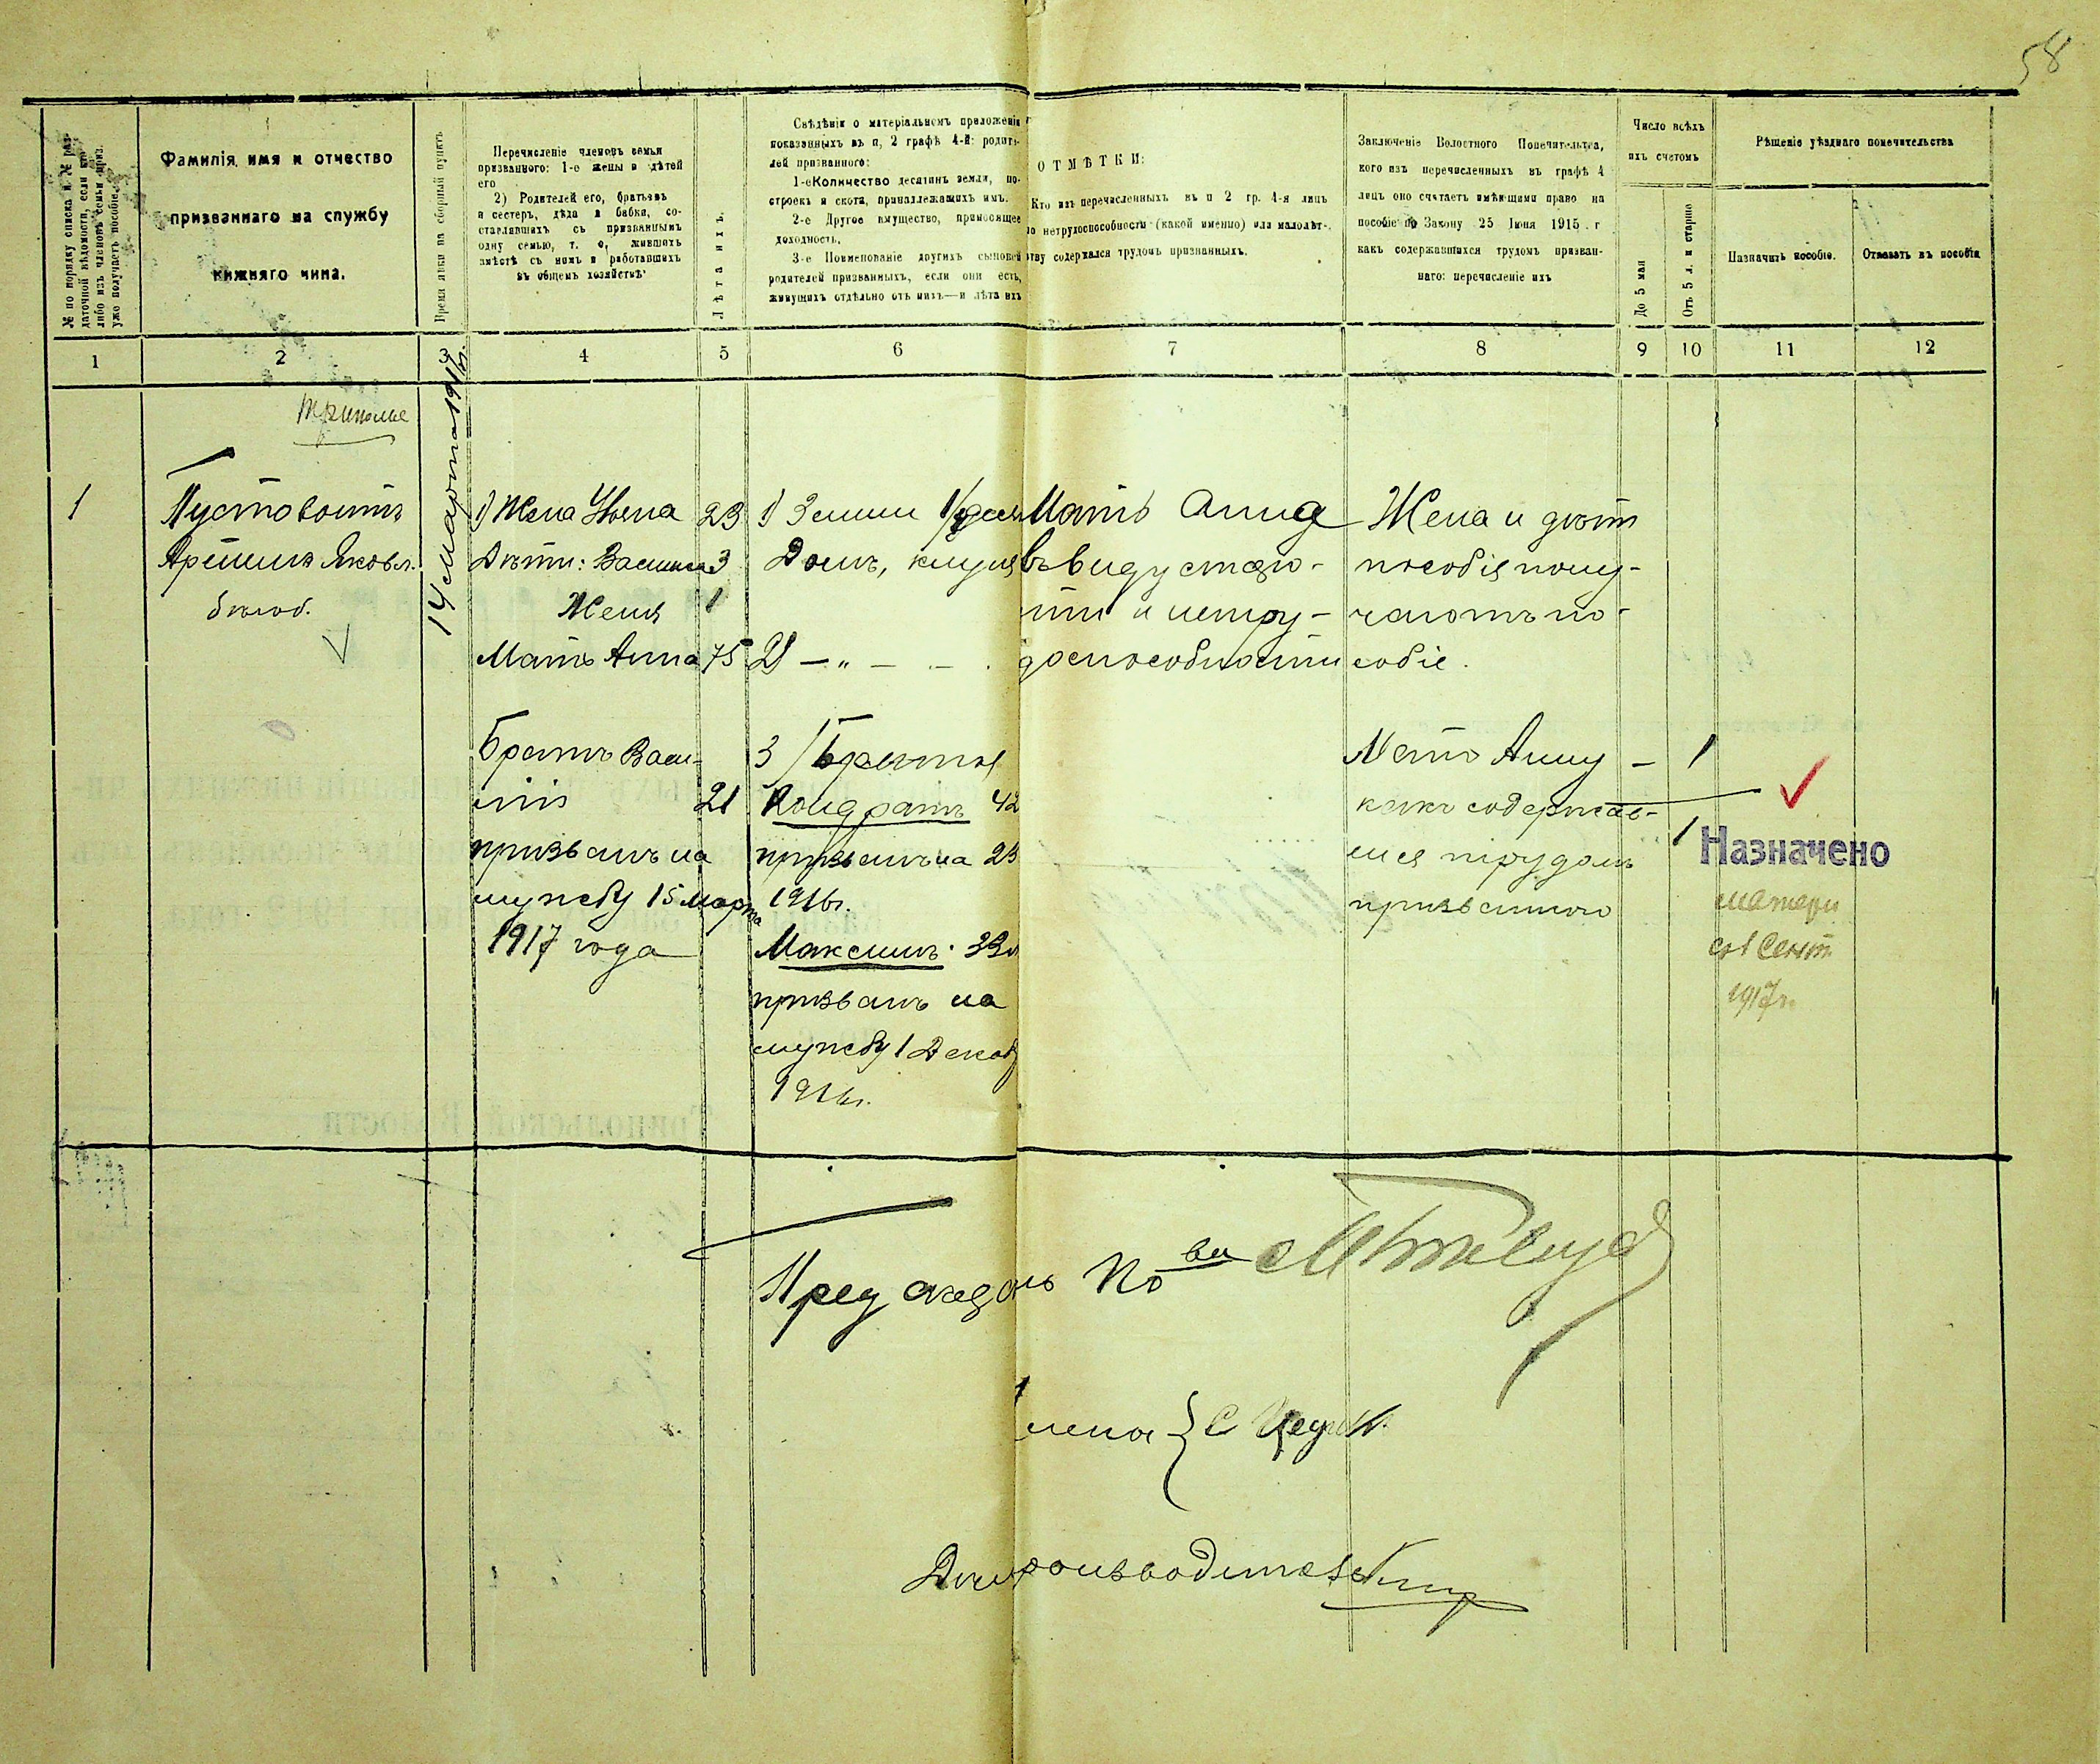 58
№ по порядку списка и № раз-
даточной вѣдомости, если кто
либо изъ членовъ семьи приз.
уже получаетъ пособіе.
Фамилія, имя и отчество
призваннаго на службу
нижняго чина.
Время явки на сборный пунктъ
Перечисленіе членовъ семьи
призваннаго: 1-е жены и дѣтей
его
2) Родителей его, братьевъ
и сестеръ, дѣда и бабки, со-
ставлявшихъ съ призваннымъ
одну семью, т. е. жившихъ
вмѣстѣ съ нимъ и работавшихъ
въ общемъ хозяйствѣ
Лѣта ихъ.
Свѣдѣнія о матеріальномъ положеніи
показанныхъ въ п, 2 графѣ 4-й: родите-
лей призваннаго:
1-е Количество десятинъ земли, по-
строекъ и скота, принадлежащихъ имъ.
2-е Другое имущество, приносящее
доходность.
3-е Поименованіе другихъ сыновей
родителей призванныхъ, если они есть,
живущихъ отдѣльно отъ нихъ—и лѣта ихъ
ОТМѢТКИ:
Кто изъ перечисленныхъ въ п 2 гр. 4-я лицъ
по нетрудоспособности (какой именно) или малолѣт-
ству содержался трудомъ призванныхъ.
Заключеніе Волостного Попечительства,
кого изъ перечисленныхъ въ графѣ 4
лицъ оно считаетъ имѣющими право на
пособіе по Закону 25 Іюня 1915 . г
какъ содержавшихся трудомъ призван-
наго: перечисленіе ихъ
Число всѣхъ
ихъ счетомъ
До 5 мая
Отъ 5 л. и старше
Рѣшеніе уѣзднаго попечительства
Назначить пособіе.
Отказать въ пособіи
1 2 3 4 5 6 7 8 9 10 11 12
Триполье
14 Марта 1917 г.
1
Пустовойтъ
Яковл.
1) Жена 23
Дѣти: 3
Женя 1
Мать Анна 75
Братъ Васи-
лій 21
призванъ на
службу 15 Марта
1917 года
1) Земли
Домъ, клуня
2) — „ —
3/ Братья
Кондратъ 42
призванъ на 23
1916 г.
Максимъ 33
призванъ на
службу 1 Декаб
1916 г.
Мать Анна
въ виду старо-
сти и нетру-
доспособности
Жена и дѣти
пособія полу-
чаютъ по-
собіе.
Мать Анну — 1
какъ содержав-
шися трудомъ
призваннаго
1
Назначено
матери
съ 1 Сент.
1917 г.
Предсѣдатель По-ва
Члена
Дѣлопроизводитель